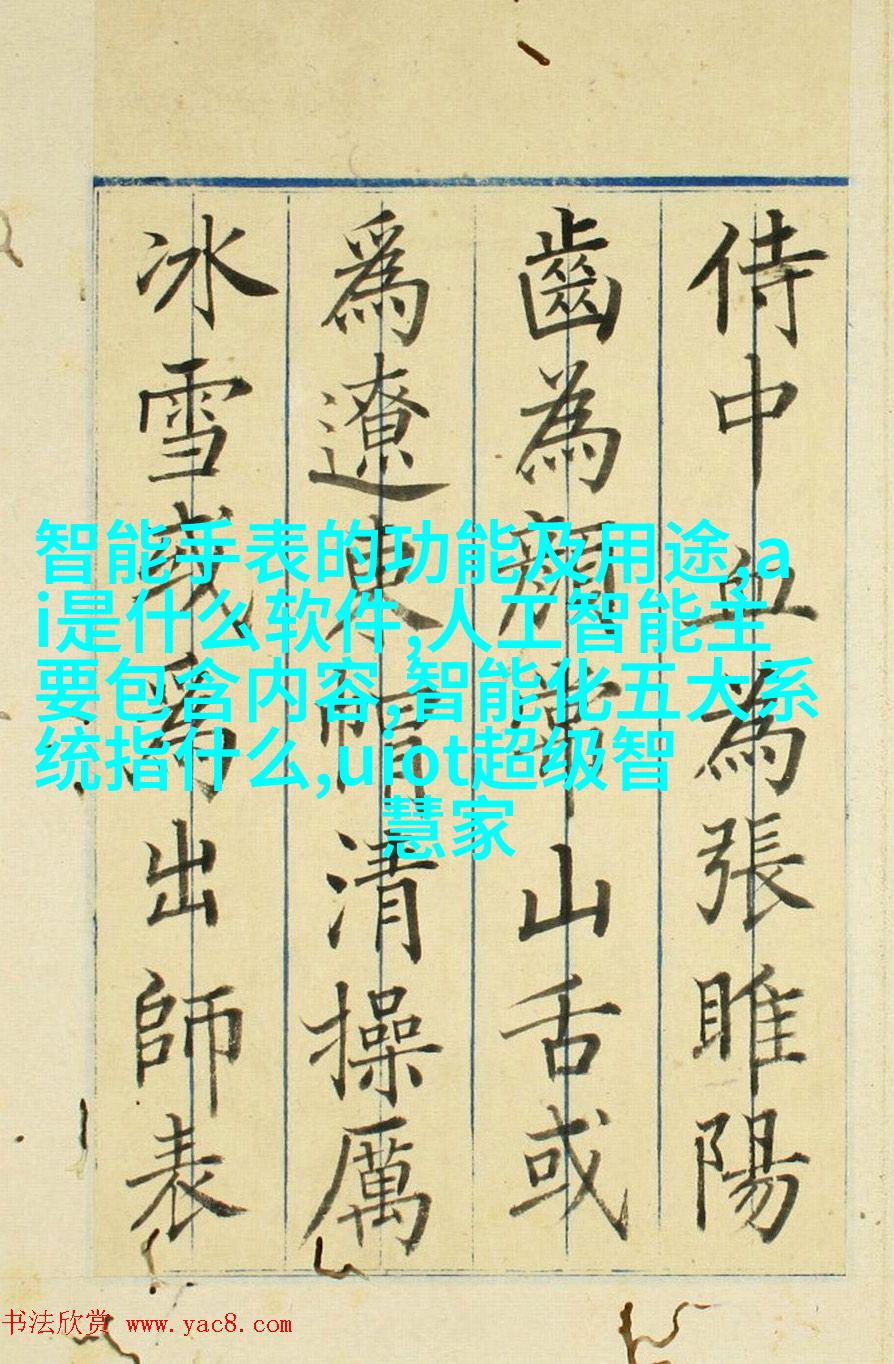 侍中血為張睢陽
齒為顏常山舌或
爲遼東帽清操厲
冰雪或爲出師表
智能手表的功能及用途,a
i是什么软件,人工智能主
要包含内容,智能化五大系
统指什么,uiot超级智
慧家
书法欣赏 www.yac8.com